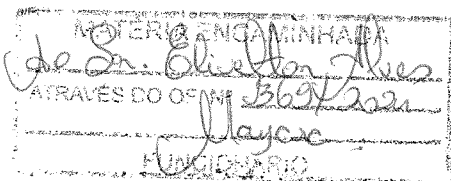 MATÉRIA ENCAMINHADA
ao Sr. Elivelton Alves
ATRAVÉS DO OF. Nº 369/2021
Mayara
FUNCIONÁRIO